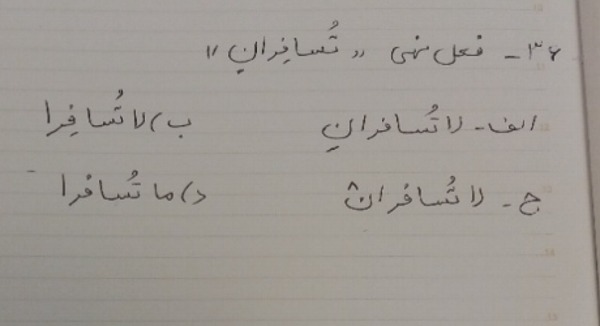 ۳۶- فعل نهی «تُسافِرانِ»
الف- لا تُسافرانِ ب) لا تُسافِرا
ج- لا تُسافرانْ د) ما تُسافرا